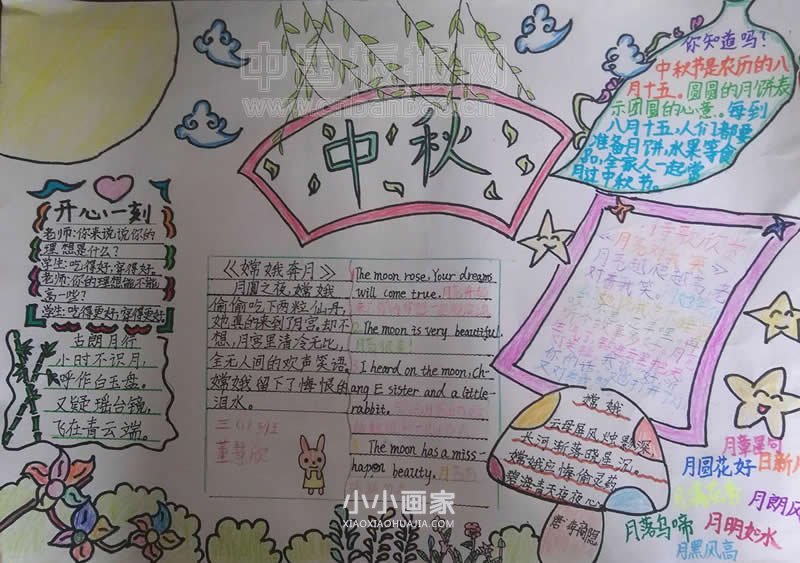 中国板报网
www.cnbanbao.cn
中秋
你知道吗?
中秋节是农历的八
月十五。圆圆的月饼表
示团圆的心意。每到
八月十五,人们都要
准备月饼,水果等食
品,全家人一起赏
月过中秋节。
开心一刻
老师:你来说说你的
理想是什么?
学生:吃得好,穿得好。
老师:你的理想能不能
高一些?
学生:吃得更好,穿得更好
古朗月行
小时不识月,
呼作白玉盘。
又疑瑶台镜,
飞在青云端。
《嫦娥奔月》
月圆之夜,嫦娥
偷偷吃下两粒仙丹,
她真的来到了月宫,却不
想,月宫里清冷无比,
全无人间的欢声笑语。
嫦娥留下了悔恨的
泪水。
三(1)班
The moon rose, Your dreams
will come true.
The moon is very beautiful.
I heard on the moon, Ch-
ang E sister and a little-
rabbit,
The moon has a miss-
hapen beauty.
诗歌欣赏
月亮越爬越高,老
对着我笑。
嫦娥
云母屏风烛影深,
长河渐落晓星沉。
嫦娥应悔偷灵药,
碧海青天夜夜心
唐·李商隐
月圆花好
月朗风
月落乌啼
月明如水
月黑风高
小小画家
XIAOXIAOHUAJIA.COM